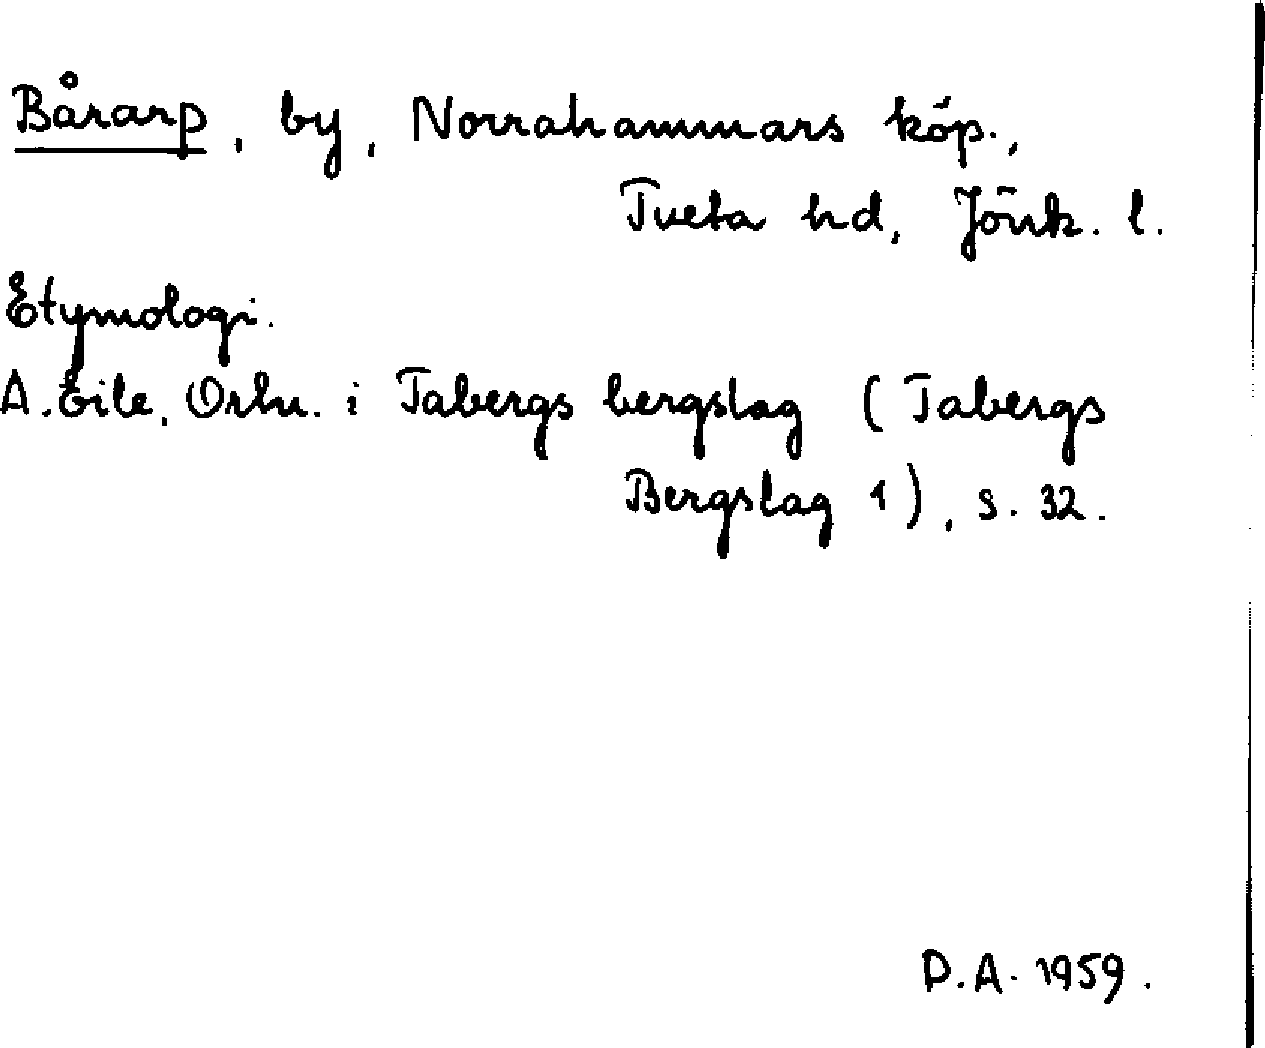 Bårarp, by, Norrahammars köp.,
Tveta hd, Jönk. l.
Etymologi.
A. Eile, Ortn. i Tabergs bergslag (Tabergs
Bergslag 1), s. 32.
D.A. 1959.